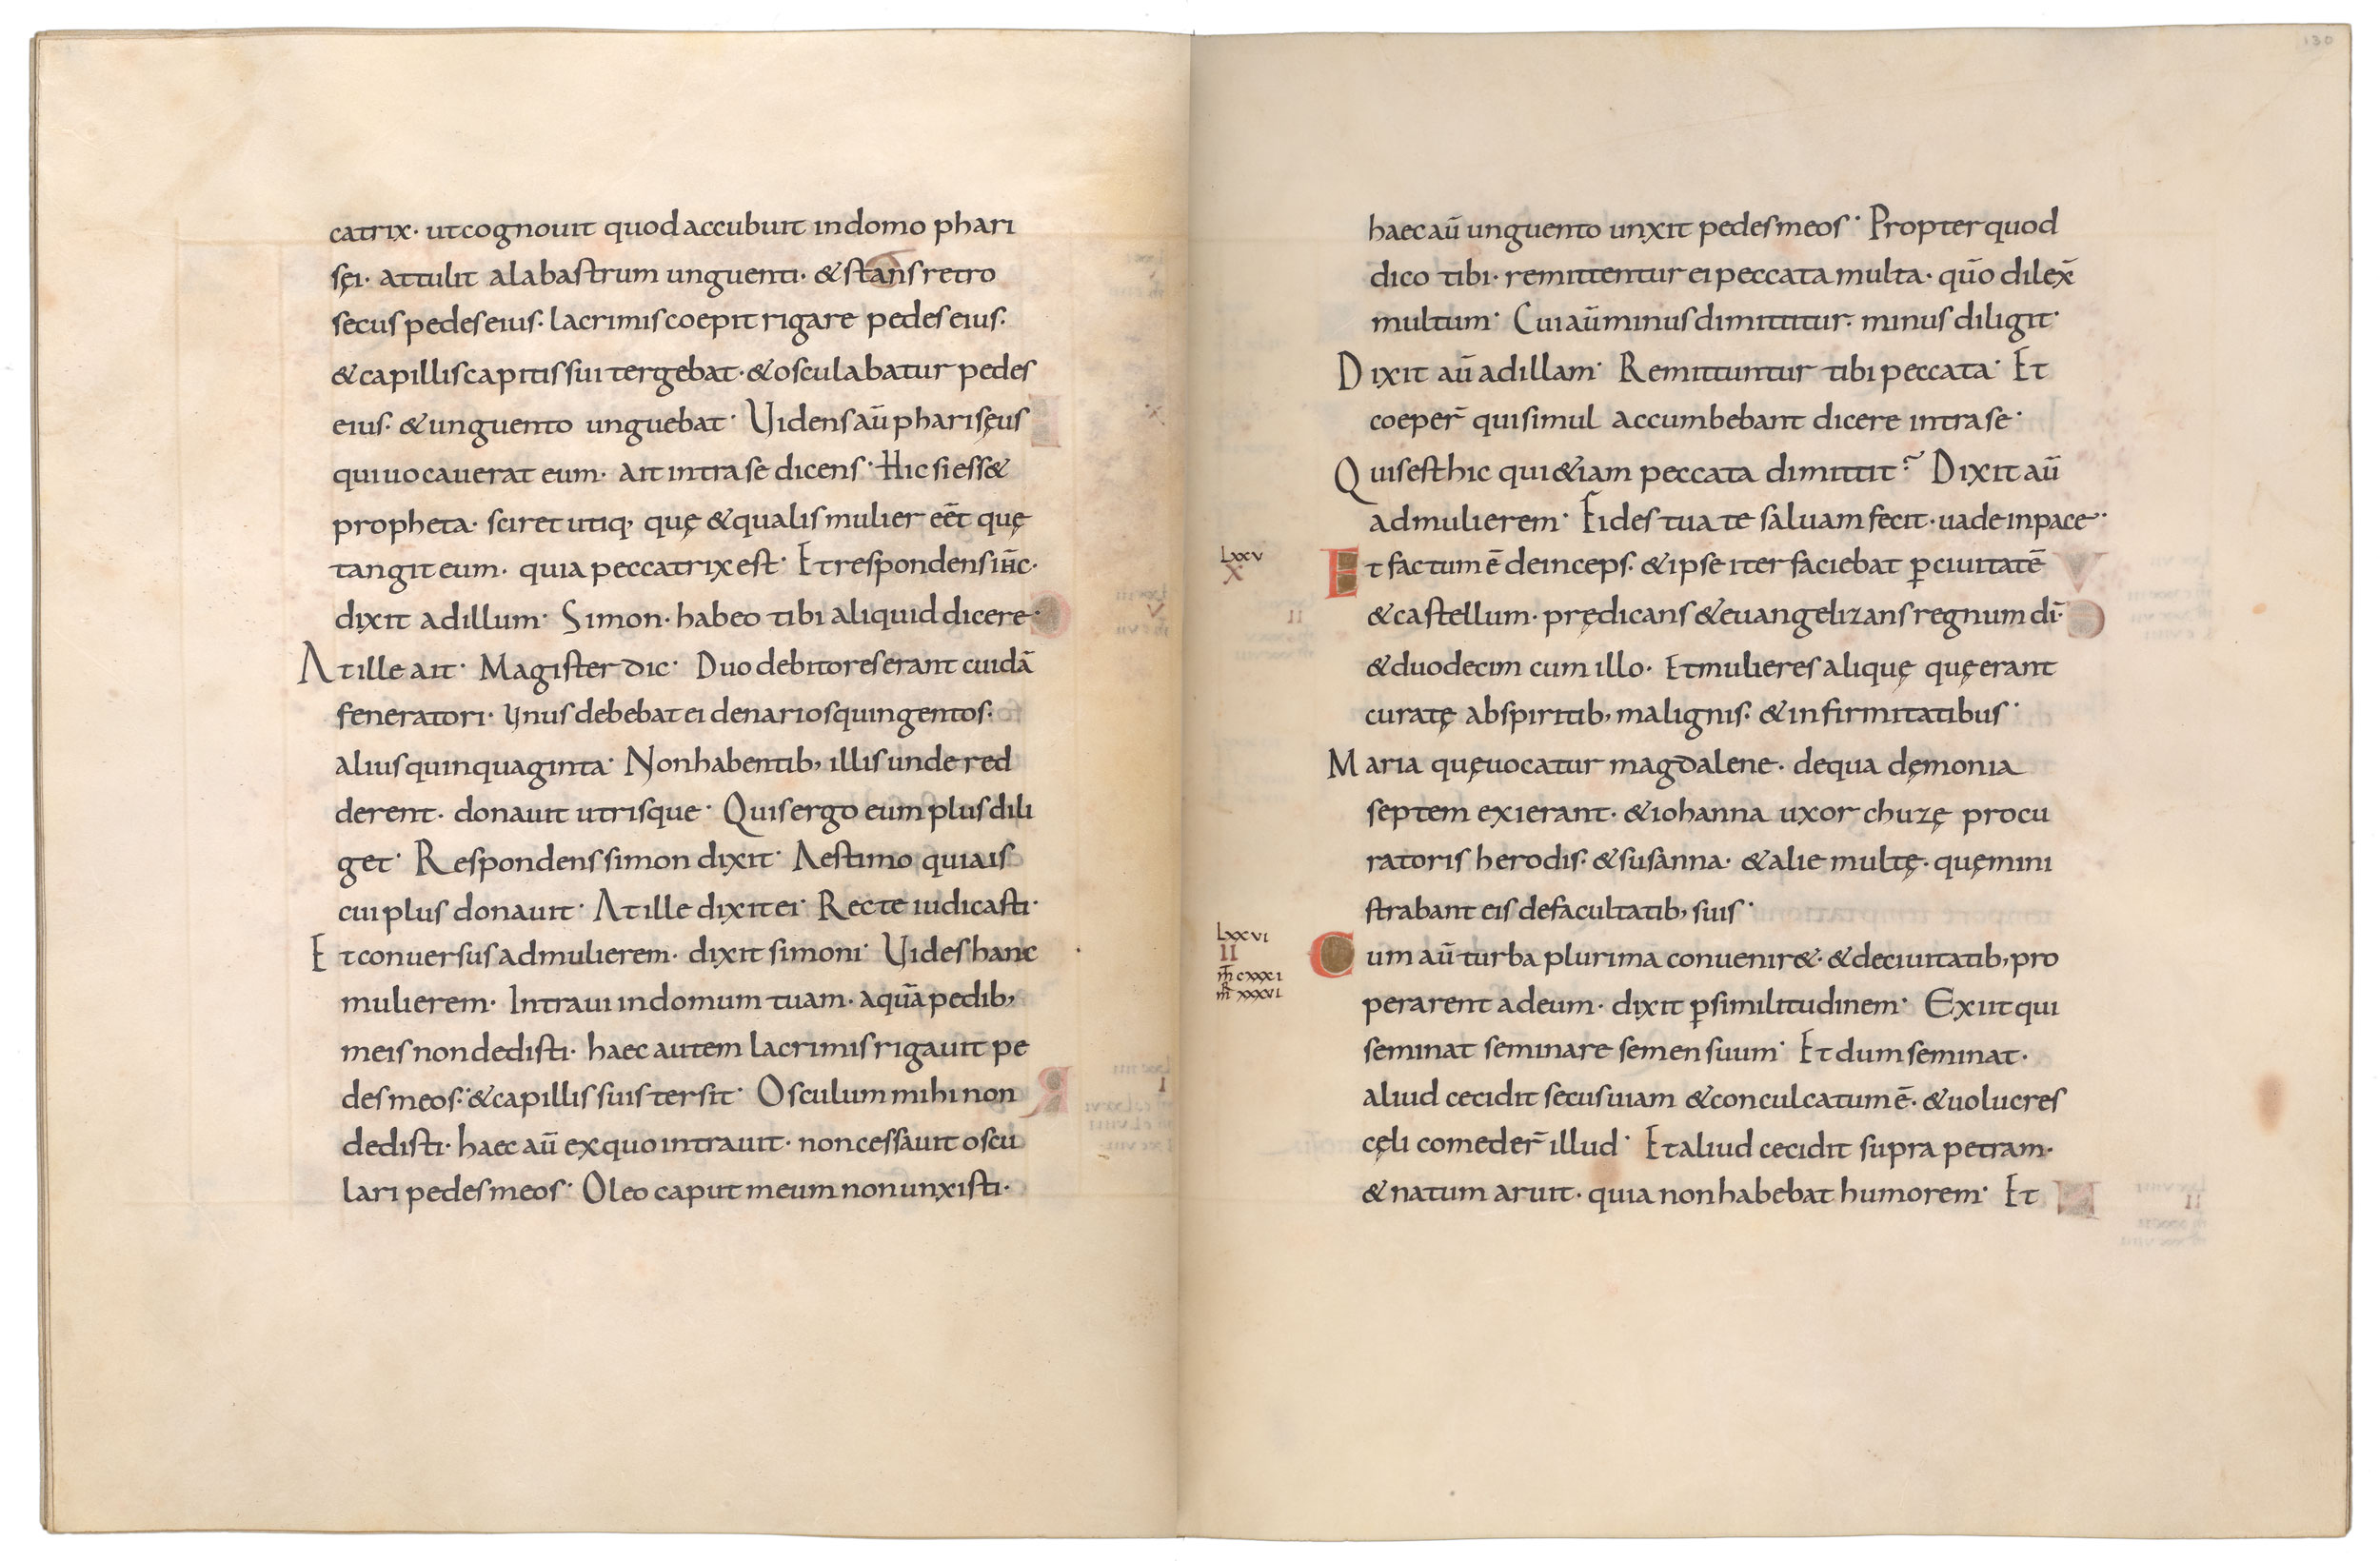 catrix· ut cognouit quod accubuit in domo phari
sęi· attulit alabastrum unguenti· & stans retro
secus pedes eius· lacrimis coepit rigare pedes eius·
& capillis capitis sui tergebat· & osculabatur pedes
eius· & unguento unguebat· Uidens aū pharisęus
qui uocauerat eum· ait intra se dicens· Hic si ess&
propheta· sciret utiq, quę & qualis mulier eēt quę
tangit eum· quia peccatrix est· Et respondens ih̄c·
dixit ad illum· Simon· habeo tibi aliquid dicere·
At ille ait· Magister dic· Duo debitores erant cuidā
feneratori· Unus debebat ei denarios quingentos·
alius quinquaginta· Non habentib, illis unde red
derent· donauit utrisque· Quis ergo eum plus dili
get· Respondens simon dixit· Aestimo quia is
cui plus donauit· At ille dixit ei· Recte iudicasti·
Et conuersus ad mulierem· dixit simoni· Uides hanc
mulierem· Intraui in domum tuam· aquā pedib,
meis non dedisti· haec autem lacrimis rigauit pe
des meos· & capillis suis tersit· Osculum mihi non
dedisti· haec aū ex quo intrauit· non cessauit oscu
lari pedes meos· Oleo caput meum non unxisti·
130
haec aū unguento unxit pedes meos· Propter quod
dico tibi· remittentur ei peccata multa· qūo dilex̄
multum· Cui aū minus dimittitur· minus diligit·
Dixit aū ad illam· Remittuntur tibi peccata· Et
coeper̄ qui simul accumbebant dicere intra se·
Quis est hic qui &iam peccata dimittit? Dixit aū
ad mulierem· Fides tua te saluam fecit· uade in pace·
LXXV
X
Et factum ē deinceps· & ipse iter faciebat ꝑ ciuitatē
& castellum· prędicans & euangelizans regnum dī·
& duodecim cum illo· Et mulieres aliquę quę erant
curatę ab spiritib, malignis· & infirmitatibus·
Maria quę uocatur magdalene· de qua dęmonia
septem exierant· & iohanna uxor chuzę procu
ratoris herodis· & susanna· & alie multę· quę mini
strabant eis de facultatib, suis·
LXXVI
II
m̄ cxxxi
m̄ xxxvi
Cum aū turba plurima conuenir&· & de ciuitatib, pro
perarent ad eum· dixit ꝑ similitudinem· Exiit qui
seminat seminare semen suum· Et dum seminat·
aliud cecidit secus uiam & conculcatum ē· & uolucres
cęli comeder̄ illud· Et aliud cecidit supra petram·
& natum aruit· quia non habebat humorem· Et